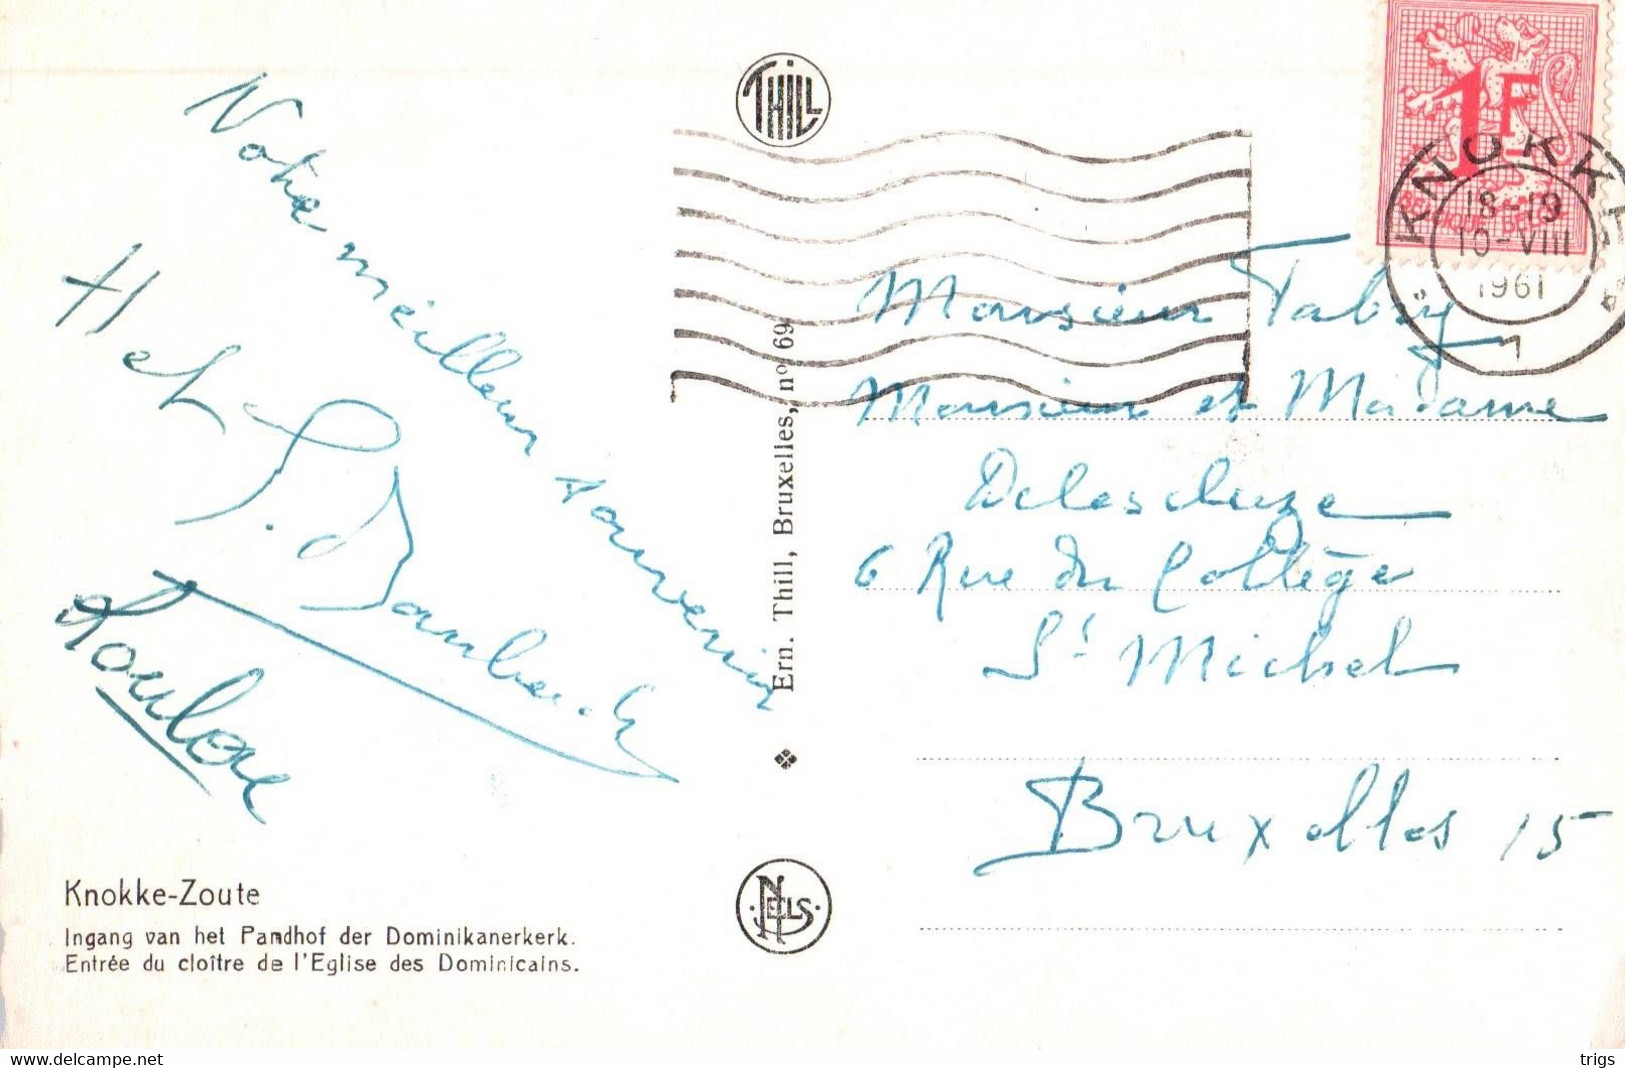 THILL
1F
BELGIQUE-BELGIE
KNOKKE
18-19
10-VIII
1961
Notre meilleur souvenir
H et
Loulou
Monsieur Fabry
Monsieur et Madame
Delescluze
6 Rue du Collège
St Michel
Bruxelles 15
Ern. Thill, Bruxelles, nº 69
NELS
Knokke-Zoute
Ingang van het Pandhof der Dominikanerkerk.
Entrée du cloître de l'Eglise des Dominicains.
https://www.delcampe.net
trigs